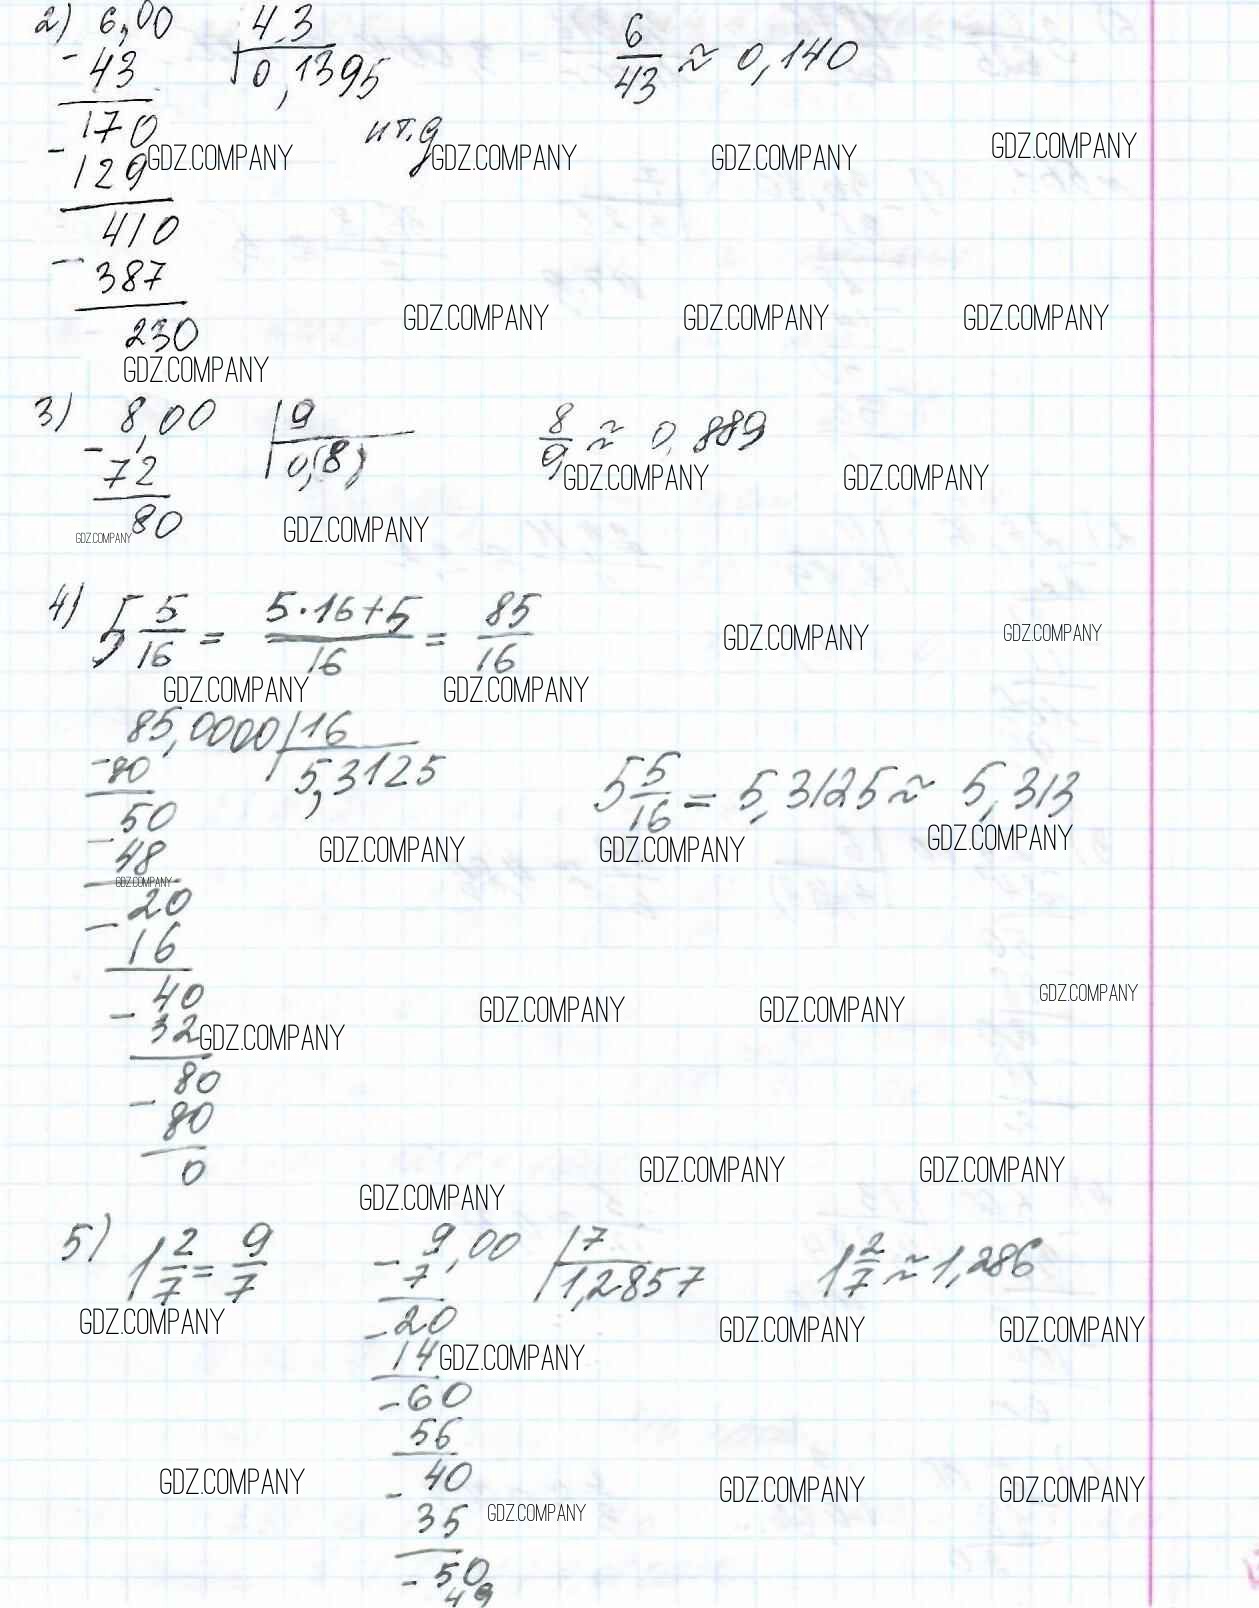 2) 6,00 | 43
6/43 ≈ 0,140
- 43
0,1395
170
и т.д
- 129
GDZ.COMPANY GDZ.COMPANY GDZ.COMPANY GDZ.COMPANY
410
- 387
GDZ.COMPANY GDZ.COMPANY GDZ.COMPANY
230
GDZ.COMPANY
3) 8,00 | 9
8/9 ≈ 0,889
- 72
0,(8)
GDZ.COMPANY GDZ.COMPANY
80
GDZ.COMPANY GDZ.COMPANY
4) 5 5/16 = (5·16+5)/16 = 85/16
GDZ.COMPANY GDZ.COMPANY
GDZ.COMPANY GDZ.COMPANY
85,0000 | 16
- 80
5,3125
5 5/16 = 5,3125 ≈ 5,313
50
- 48
GDZ.COMPANY GDZ.COMPANY GDZ.COMPANY
GDZ.COMPANY
- 20
16
- 40
32
GDZ.COMPANY GDZ.COMPANY GDZ.COMPANY
GDZ.COMPANY
- 80
80
0
GDZ.COMPANY GDZ.COMPANY
GDZ.COMPANY
5) 1 2/7 = 9/7
- 9,00 | 7
1 2/7 ≈ 1,286
7
1,2857
GDZ.COMPANY GDZ.COMPANY GDZ.COMPANY
- 20
14
GDZ.COMPANY
- 60
56
- 40
GDZ.COMPANY GDZ.COMPANY GDZ.COMPANY
35
GDZ.COMPANY
- 50
49